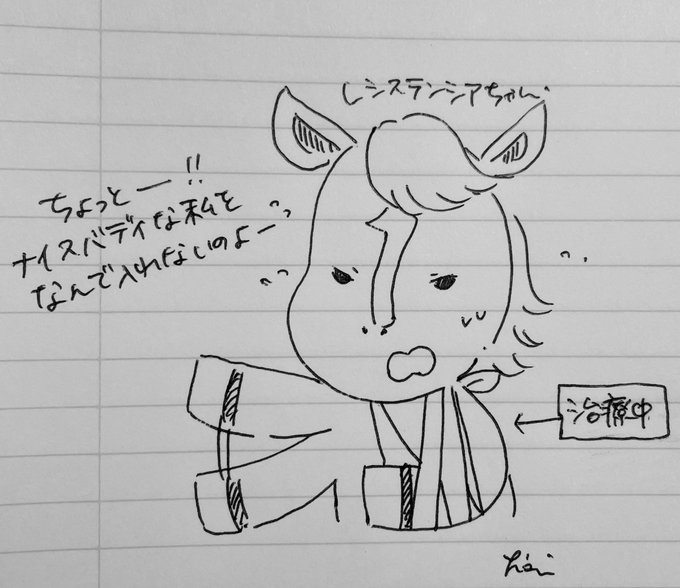 レシステンシアちゃん.
ちょっとー!!
ナイスバディな私を
なんで入れないのよー
治療中